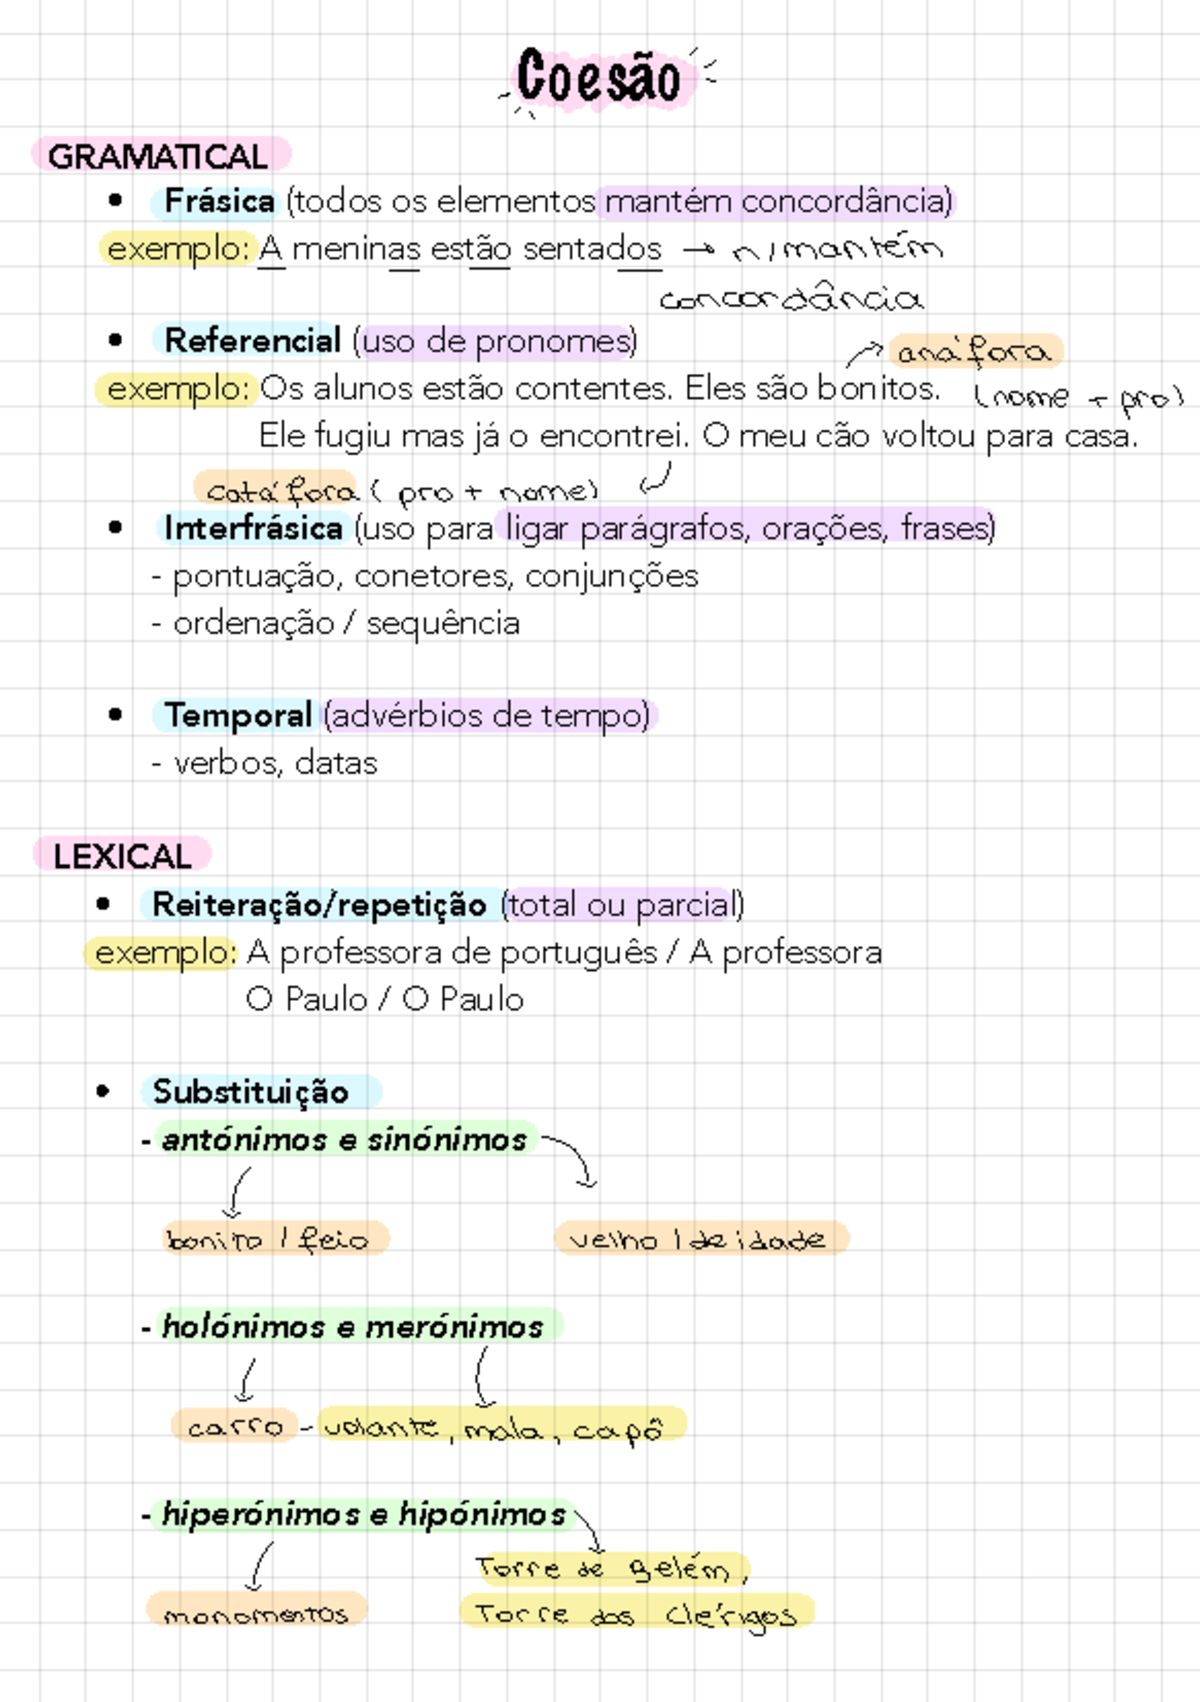 Coesão
GRAMATICAL
• Frásica (todos os elementos mantém concordância)
exemplo: A meninas estão sentados → n/mantém
concordância
• Referencial (uso de pronomes)
anáfora
exemplo: Os alunos estão contentes. Eles são bonitos. (nome + pro)
Ele fugiu mas já o encontrei. O meu cão voltou para casa.
catáfora ( pro + nome)
• Interfrásica (uso para ligar parágrafos, orações, frases)
- pontuação, conetores, conjunções
- ordenação / sequência
• Temporal (advérbios de tempo)
- verbos, datas
LEXICAL
• Reiteração/repetição (total ou parcial)
exemplo: A professora de português / A professora
O Paulo / O Paulo
• Substituição
- antónimos e sinónimos
bonito / feio velho / de idade
- holónimos e merónimos
carro - volante, mala, capô
- hiperónimos e hipónimos
Torre de Belém,
monomentos Torre dos Clérigos